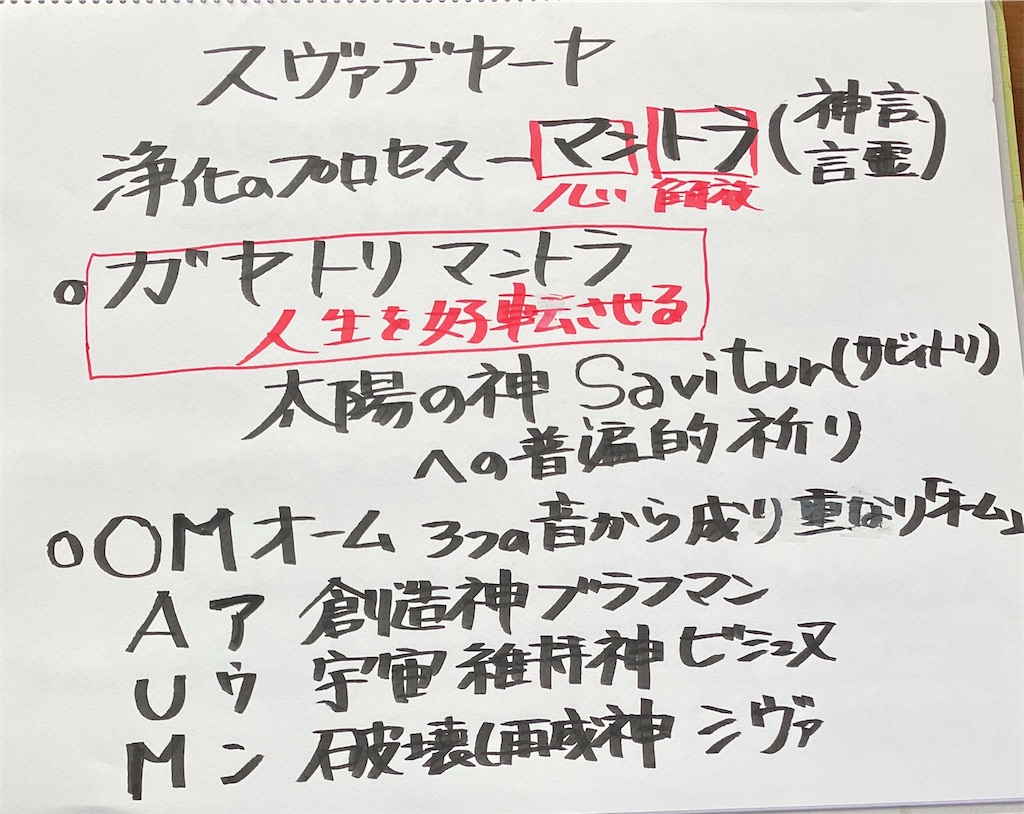 スヴァデヤーヤ
浄化のプロセス－マントラ(神言 言霊)
心 解放
○ガヤトリマントラ
人生を好転させる
太陽の神 Savitur(サビィトリ)
への普遍的祈り
○OM オーム 3つの音から成り重なり「オーム」
A ア 創造神ブラフマン
U ウ 宇宙維持神ビシュヌ
M ン 破壊し再成神 シヴァ